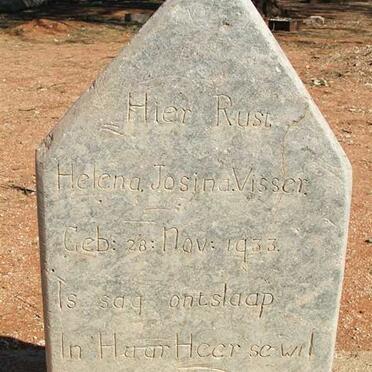 Hier Rust
Helena Josina Visser.
Geb: 28: Nov: 1933.
Is sag ontslaap
In Haar Heer se wil